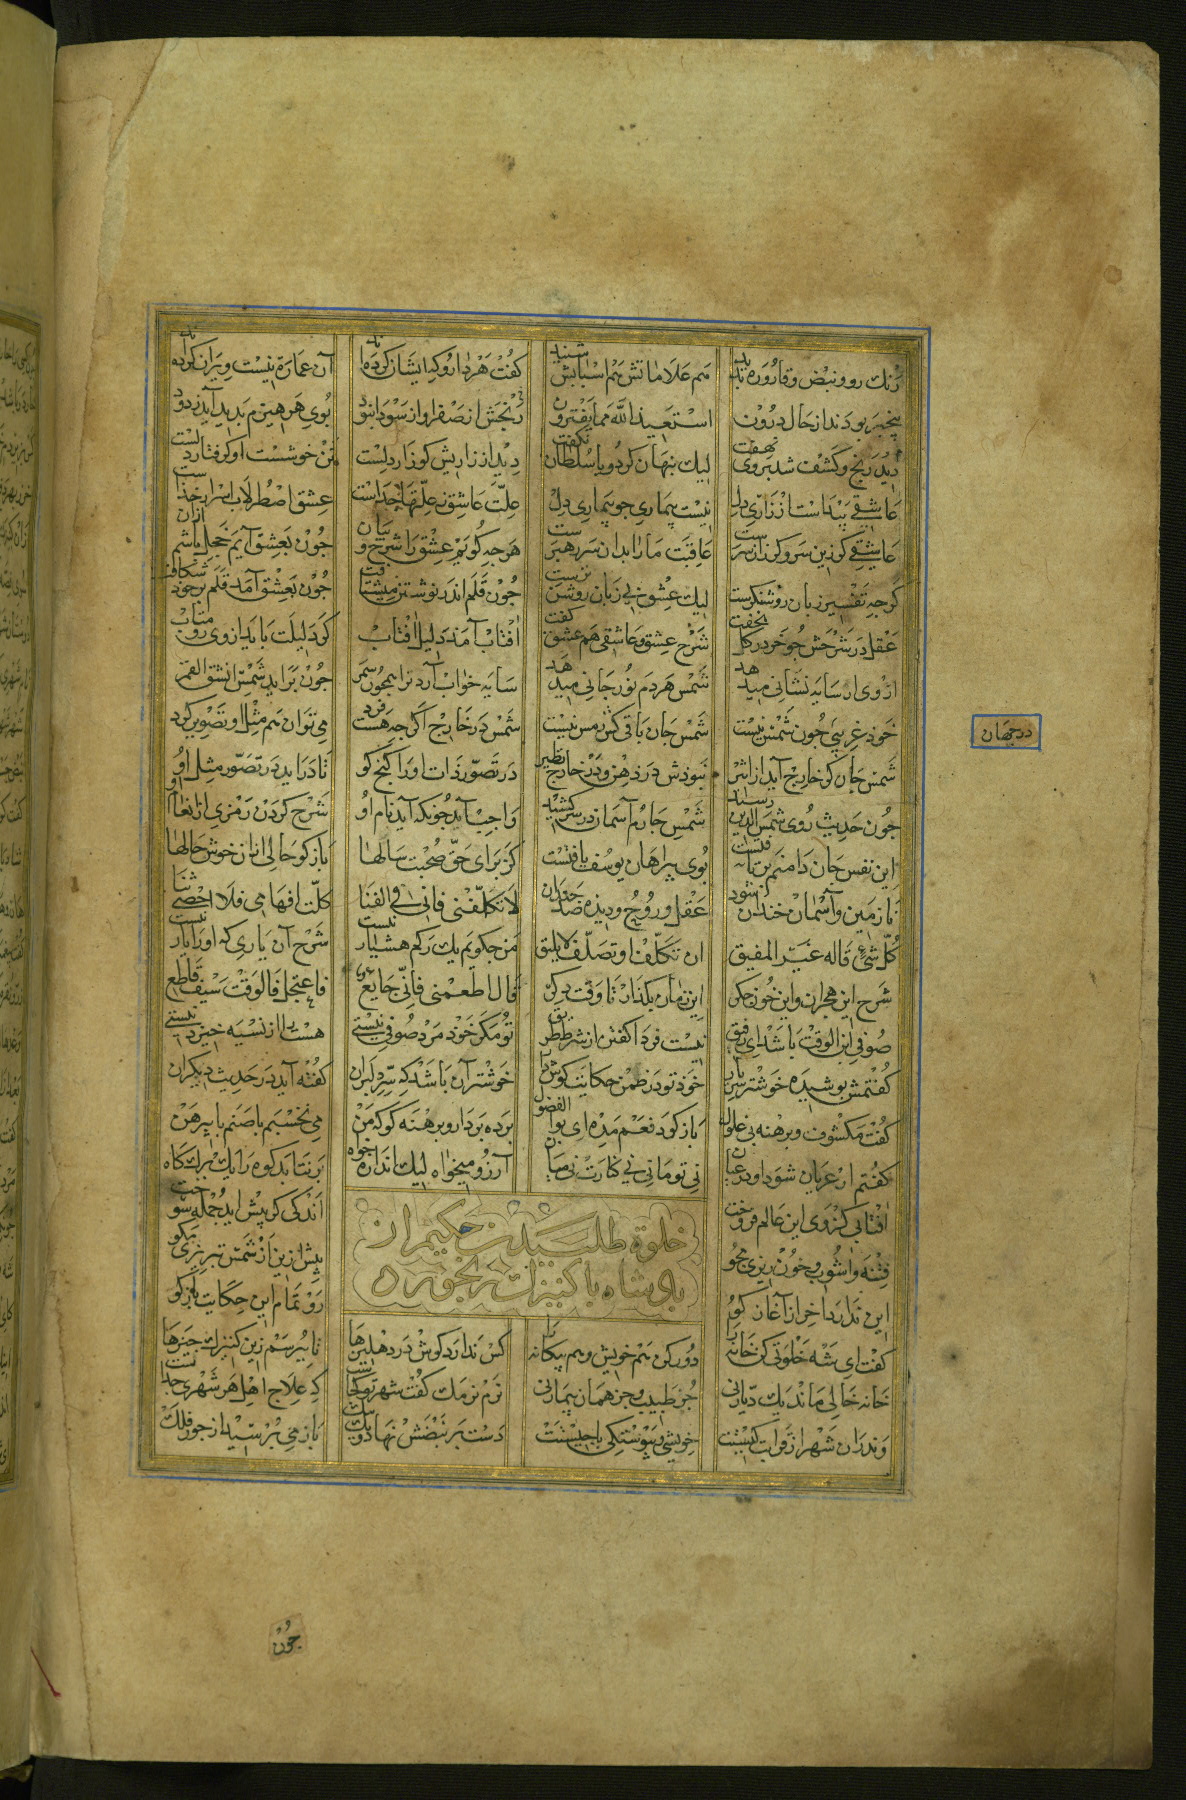 رنک رو و نبض و قاروره بدید هم علاماتش هم اسبابش شنید کفت هر دارو که ایشان کرده اند آن عماره نیست ویران کرده اند
بیخبر بودند از حال درون استعیذ الله مما یفترون رنجش از صفرا و از سودا نبود بوی هر هیزم بدید آید ز دود
دید رنج و کشف شد بر وی نهفت لیک بنهان کرد و با سلطان نکفت دید از زاریش کو زار دلست تن خوشست او کرفتار دلست
عاشقی پیداست از زاری دل نیست بیماری جو بیماری دل علت عاشق ز علتها جداست عشق اصطرلاب اسرار خداست
عاشقی کر زین سر و کر زان سرست عاقبت ما را بدان سر رهبرست هرجه کویم عشق را شرح و بیان جون بعشق آیم خجل باشم ازان
کرجه تفسیر زبان روشنکرست لیک عشق بی زبان روشن ترست جون قلم اندر نوشتن میشتافت جون بعشق آمد قلم بر خود شکافت
عقل در شرحش جو خر در کل بخفت شرح عشق و عاشقی هم عشق کفت افتاب آمد دلیل افتاب کر دلیلت باید از وی رو متاب
از وی ار سایه نشانی میدهد شمس هر دم نور جانی میدهد سایه خواب آرد ترا همجون سمر جون براید شمس انشق القمر
خود غریبی جون شمس نیست شمس جان باقی کش امس نیست شمس در خارج اکرجه هست فرد می توان هم مثل او تصویر کرد
در جهان
شمس جان کو خارج آید از اثیر نبودش در ذهن و در خارج نظیر در تصور ذات او را کنج کو تا دراید در تصور مثل او
جون حدیث روی شمس الدین رسید شمس جارم آسمان سر درکشید واجب آید جونکه آید نام او شرح کردن رمزی از انعام او
این نفس جان دامنم بر تافتست بوی پیراهان یوسف یافتست کز برای حق صحبت سالها بازکو حالی ازان خوش حالها
تا زمین و آسمان خندان شود عقل و روح و دیده صد جندان شود لا تکلفنی فانی فی الفنا کلت افهامی فلا احصی ثنا
کل شیء قاله غیر المفیق ان تکلف او تصلف لا یلیق من جکویم یک رکم هشیار نیست شرح آن یاری که او را یار نیست
شرح این هجران و این خون جکر این زمان بکذار تا وقت دکر قال اطعمنی فانی جایع فاعتجل فالوقت سیف قاطع
صوفی ابن الوقت باشد ای رفیق نیست فردا کفتن از شرط طریق تو مکر خود مرد صوفی نیستی هست را از نسیه خیزد نیستی
کفتمش پوشیده خوشتر سر یار خود تو در ضمن حکایت کوش دار خوشتر آن باشد که سر دلبران کفته آید در حدیث دیکران
کفت مکشوف و برهنه بی غلول بازکو دفعم مده ای بو الفضول برده بردار و برهنه کو که من می نخسبم با صنم با پیرهن
کفتم ار عریان شود او در عیان نی تو مانی نی کنارت نی میان آرزو میخواه لیک اندازه خواه بر نتابد کوه را یک برک کاه
افتابی کز وی این عالم فروخت اندکی کر پیش اید جمله سوخت
فتنه و اشوب و خون ریزی مجو بیش ازین از شمس تبریزی مکو
این ندارد اخر از آغاز کو رو تمام این حکایت بازکو
خلوة طلبیدن حکیم از
بادشاه با کنیزک رنجوره
کفت ای شه خلوتی کن خانه را دور کن هم خویش و هم بیکانه را کس ندارد کوش در دهلیزها تا بپرسم زین کنیزک جیزها
خانه خالی ماند یک دیار نی جز طبیب و جز همان بیمار نی نرم نرمک کفت شهر تو کجاست که علاج اهل هر شهری جداست
وندران شهر از قرابت کیستت خویشی و پیوستکی با جیستت دست بر نبضش نهاد و یک بیک باز می برسید از جور فلک
جون